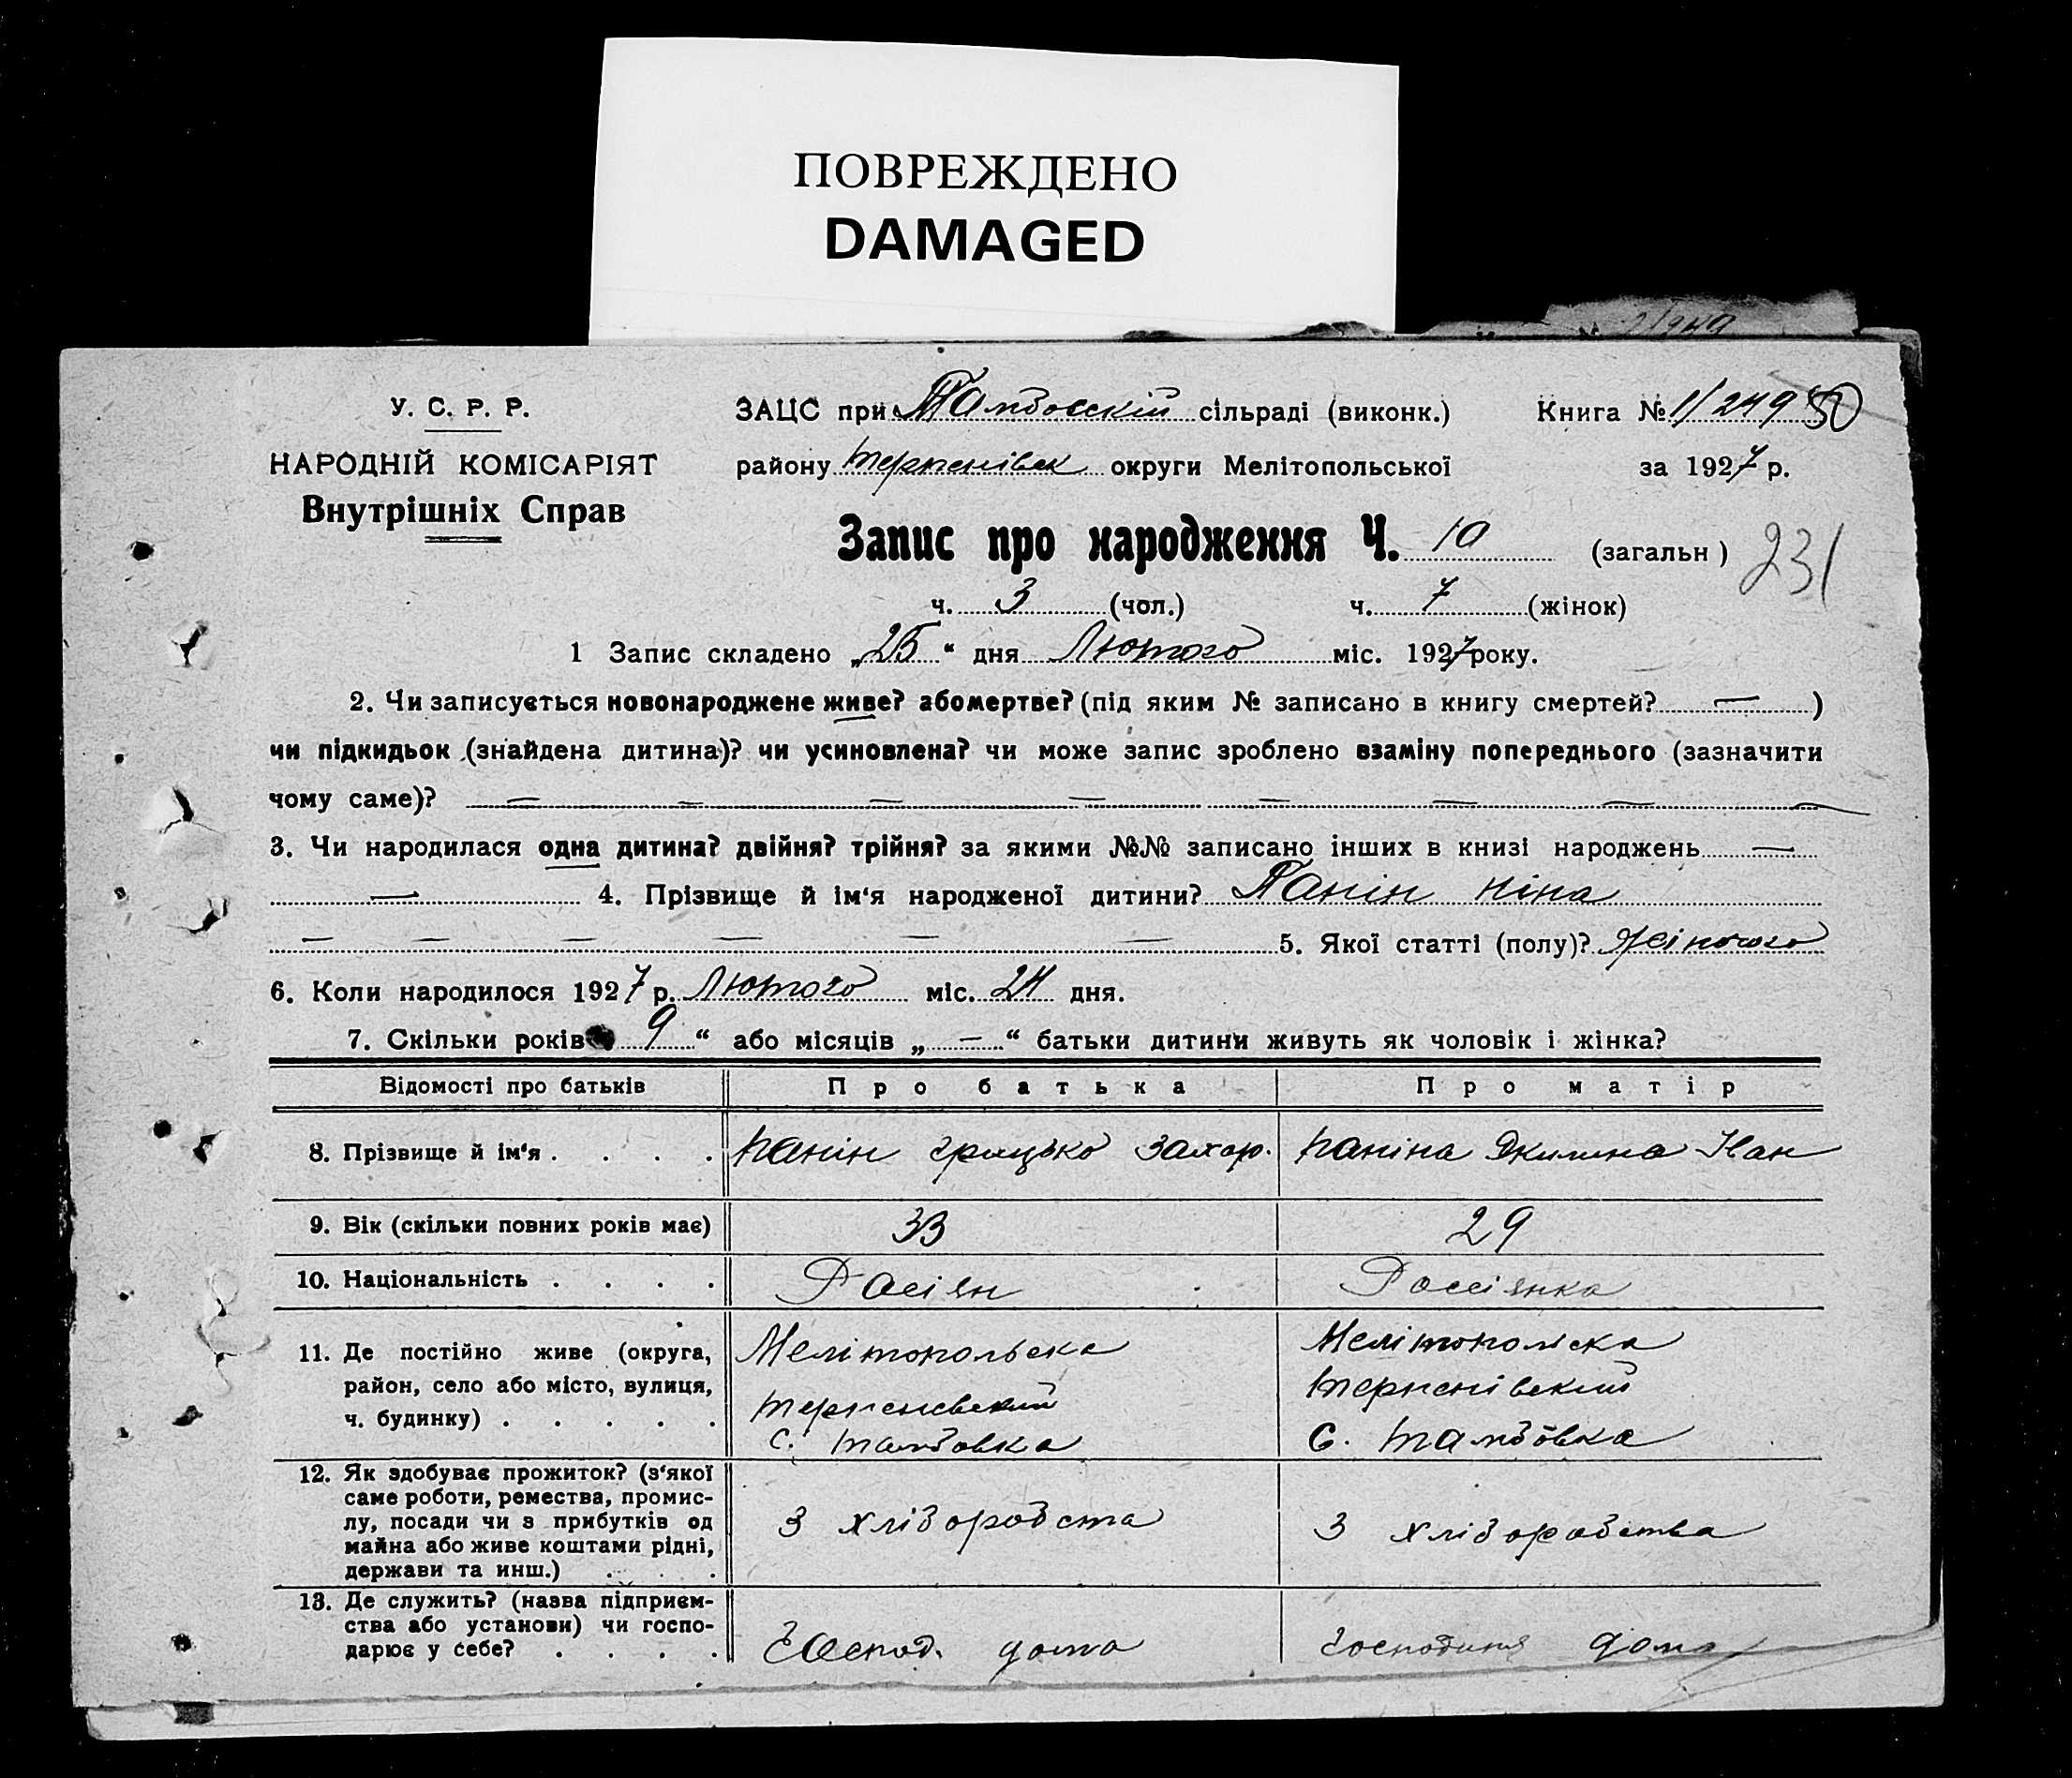 ПОВРЕЖДЕНО
DAMAGED
У. С. Р. Р.
НАРОДНІЙ КОМІСАРІЯТ
Внутрішніх Справ
ЗАЦС при Тамбовскій сільраді (виконк.) Книга № 1/249
району Терпенівск округи Мелітопольської за 1927 р.
Запис про народження Ч. 10 (загальн) 231
ч. 3 (чол.) ч. 7 (жінок)
1 Запис складено „25“ дня Лютого міс. 1927 року.
2. Чи записується новонароджене живе? або мертве? (під яким № записано в книгу смертей? — )
чи підкидьок (знайдена дитина)? чи усиновлена? чи може запис зроблено взаміну попереднього (зазначити
чому саме)? — — — — — — — —
3. Чи народилася одна дитина? двійня? трійня? за якими №№ записано інших в книзі народжень —
— 4. Прізвище й ім‘я народженої дитини? Панін Ніна
— — — — — — 5. Якої статті (полу)? Жіночого
6. Коли народилося 1927 р. Лютого міс. 24 дня.
7. Скільки років 9 “ або місяців „ — “ батьки дитини живуть як чоловік і жінка?
Відомості про батьків Про батька Про матір
8. Прізвище й ім‘я . . . . Панін Грицько Захар. Паніна Акилина Иван
9. Вік (скільки повних років має) 33 29
10. Національність . . . . Расіян Россіянка
11. Де постійно живе (округа,
район, село або місто, вулиця,
ч. будинку) . . . . .
Мелітопольска
Терпеневский
С. Тамбовка
Мелітопольска
Терпенівский
С. Тамбовка
12. Як здобуває прожиток? (з‘якої
саме роботи, ремества, промис-
лу, посади чи з прибутків од
майна або живе коштами рідні,
держави та инш.) . . .
З хліборобста
З хліборобства
13. Де служить? (назва підприєм-
ства або установи) чи госпо-
дарює у себе? . . . .
Господ. дома
Господиня дома